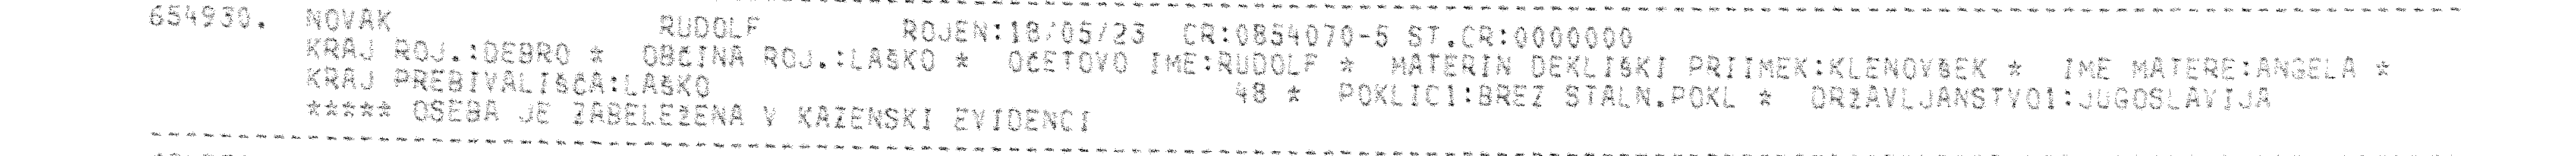 654930. NOVAK RUDOLF ROJEN:18/05/23 CR:0854070-5 ST.CR:0000000
KRAJ ROJ.:DEBRO * OBČINA ROJ.:LAŠKO * OČETOVO IME:RUDOLF * MATERIN DEKLIŠKI PRIIMEK:KLENOVŠEK * IME MATERE:ANGELA *
KRAJ PREBIVALIŠČA:LAŠKO 48 * POKLIC1:BREZ STALN.POKL * DRŽAVLJANSTVO1:JUGOSLAVIJA
***** OSEBA JE ZABELEŽENA V KAZENSKI EVIDENCI